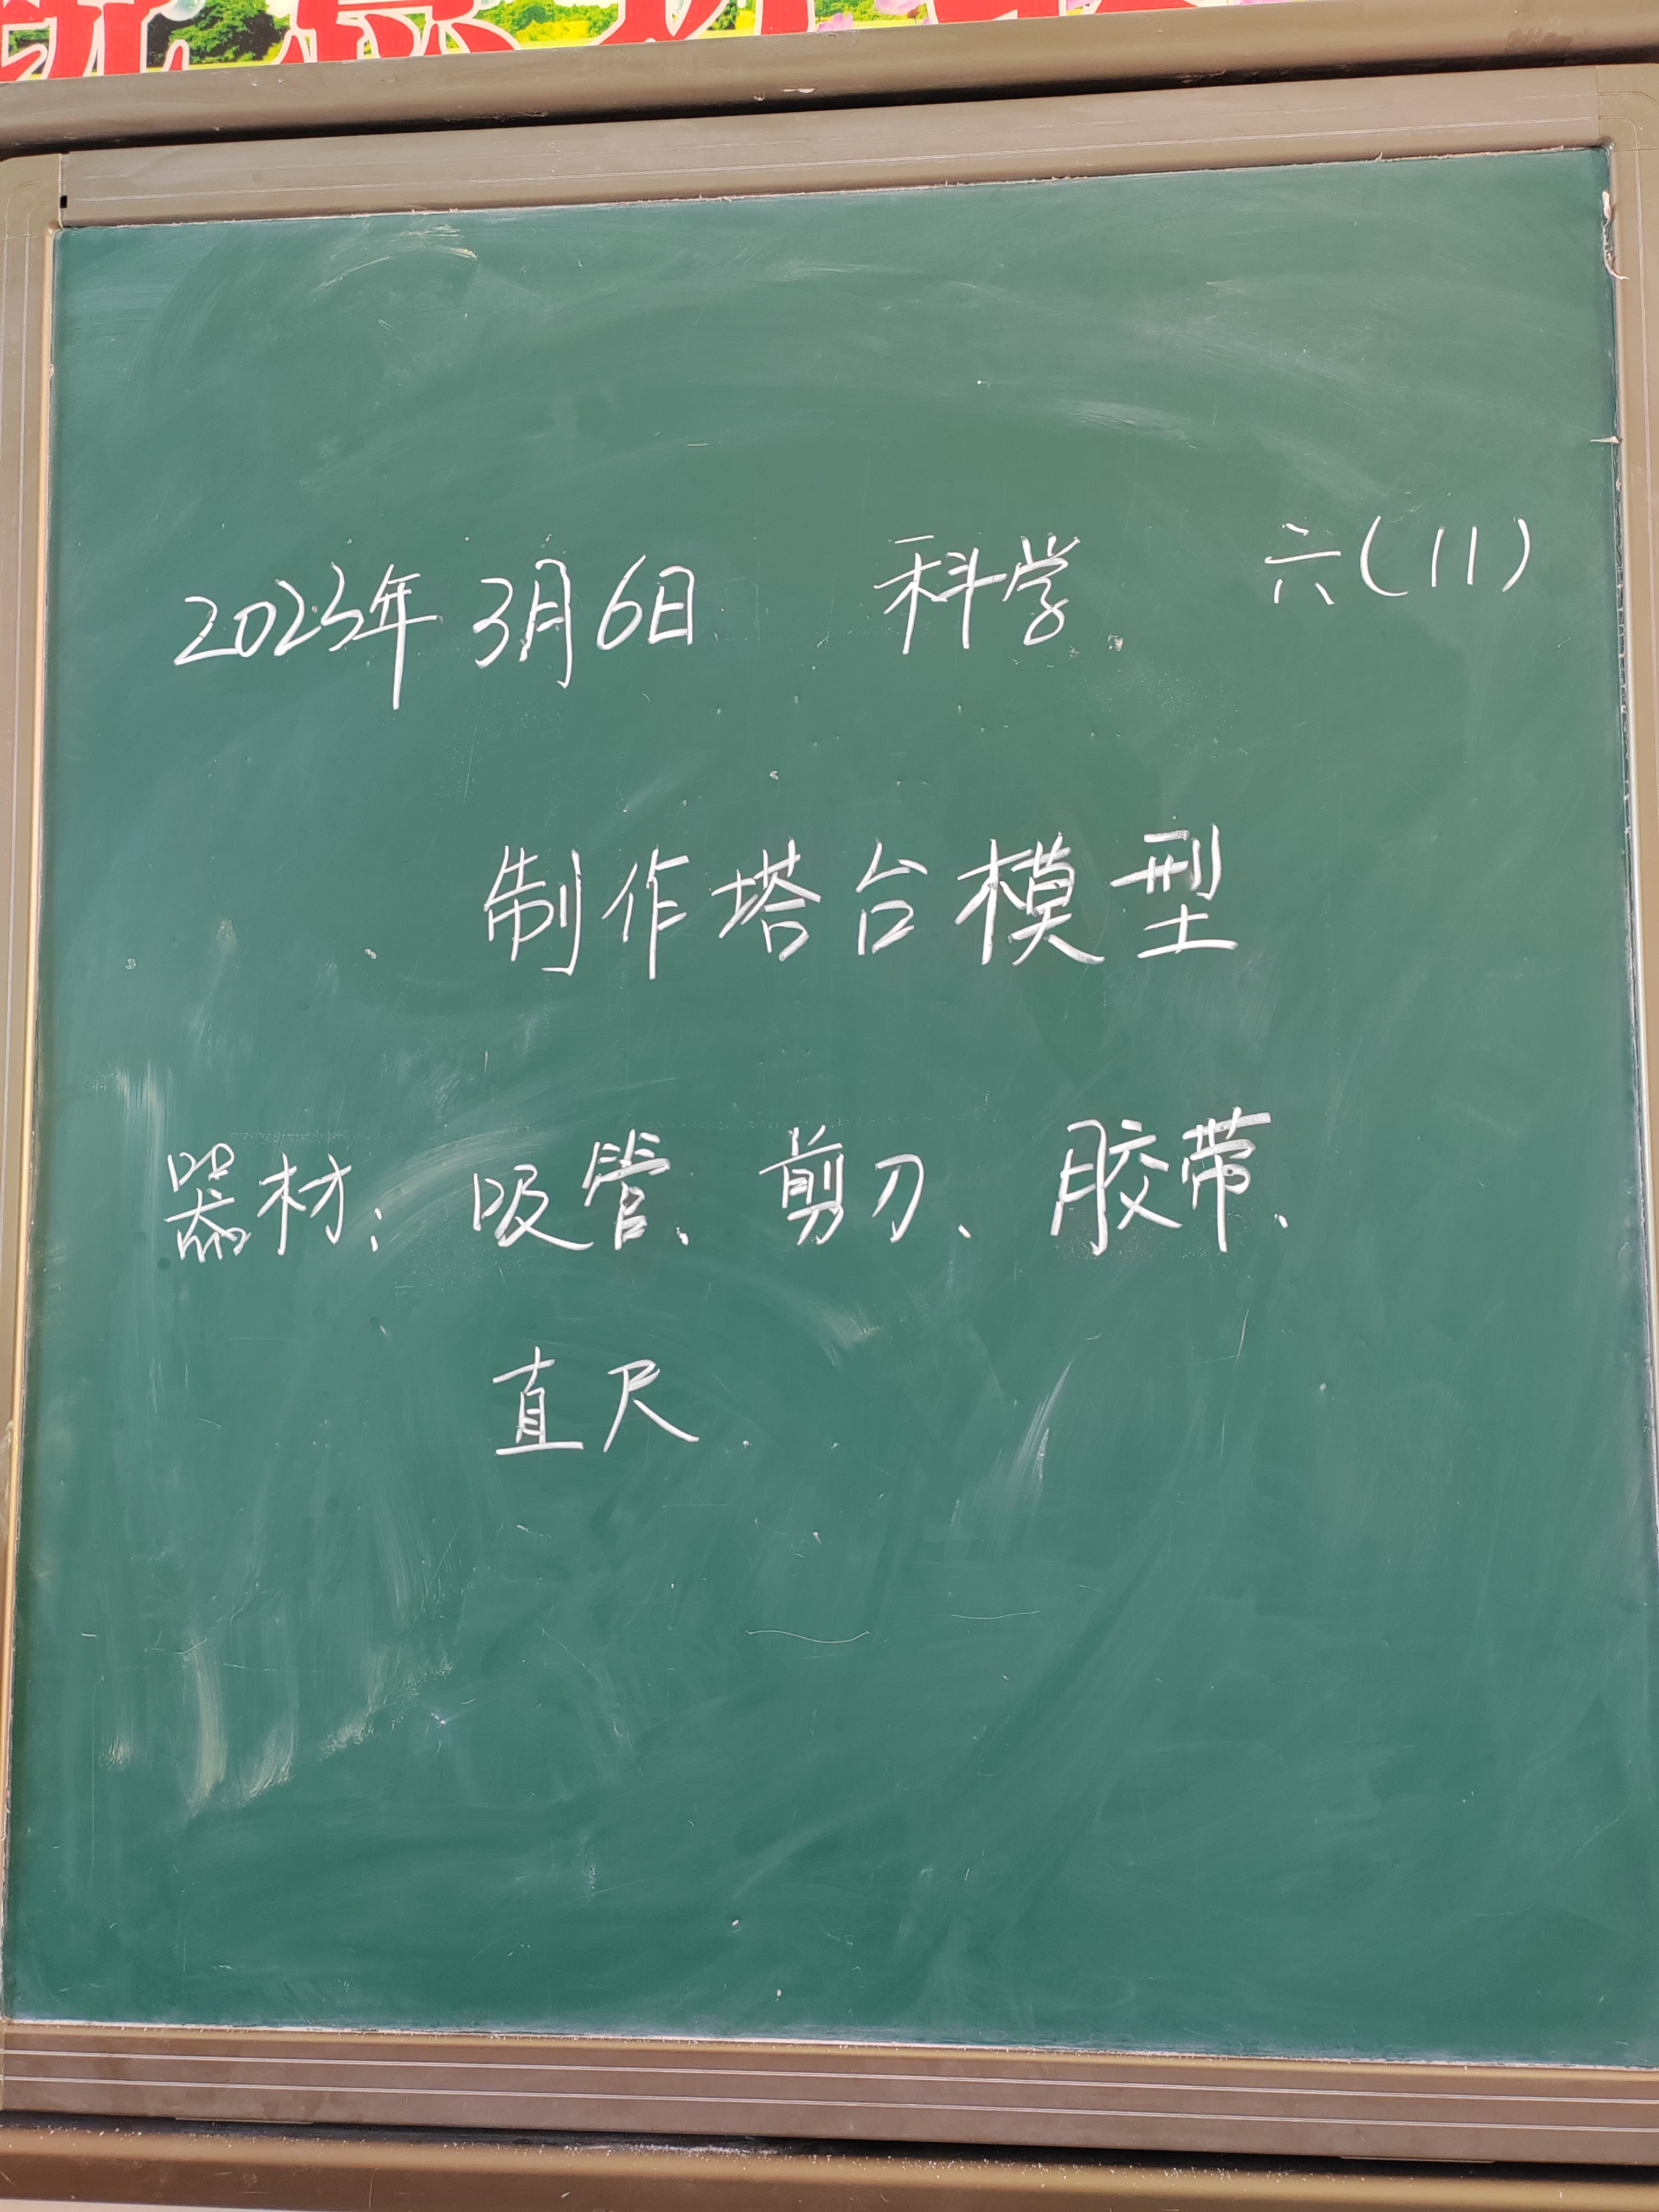 2023年3月6日 科学 六(11)
制作塔台模型
器材: 吸管、剪刀、胶带、
直尺